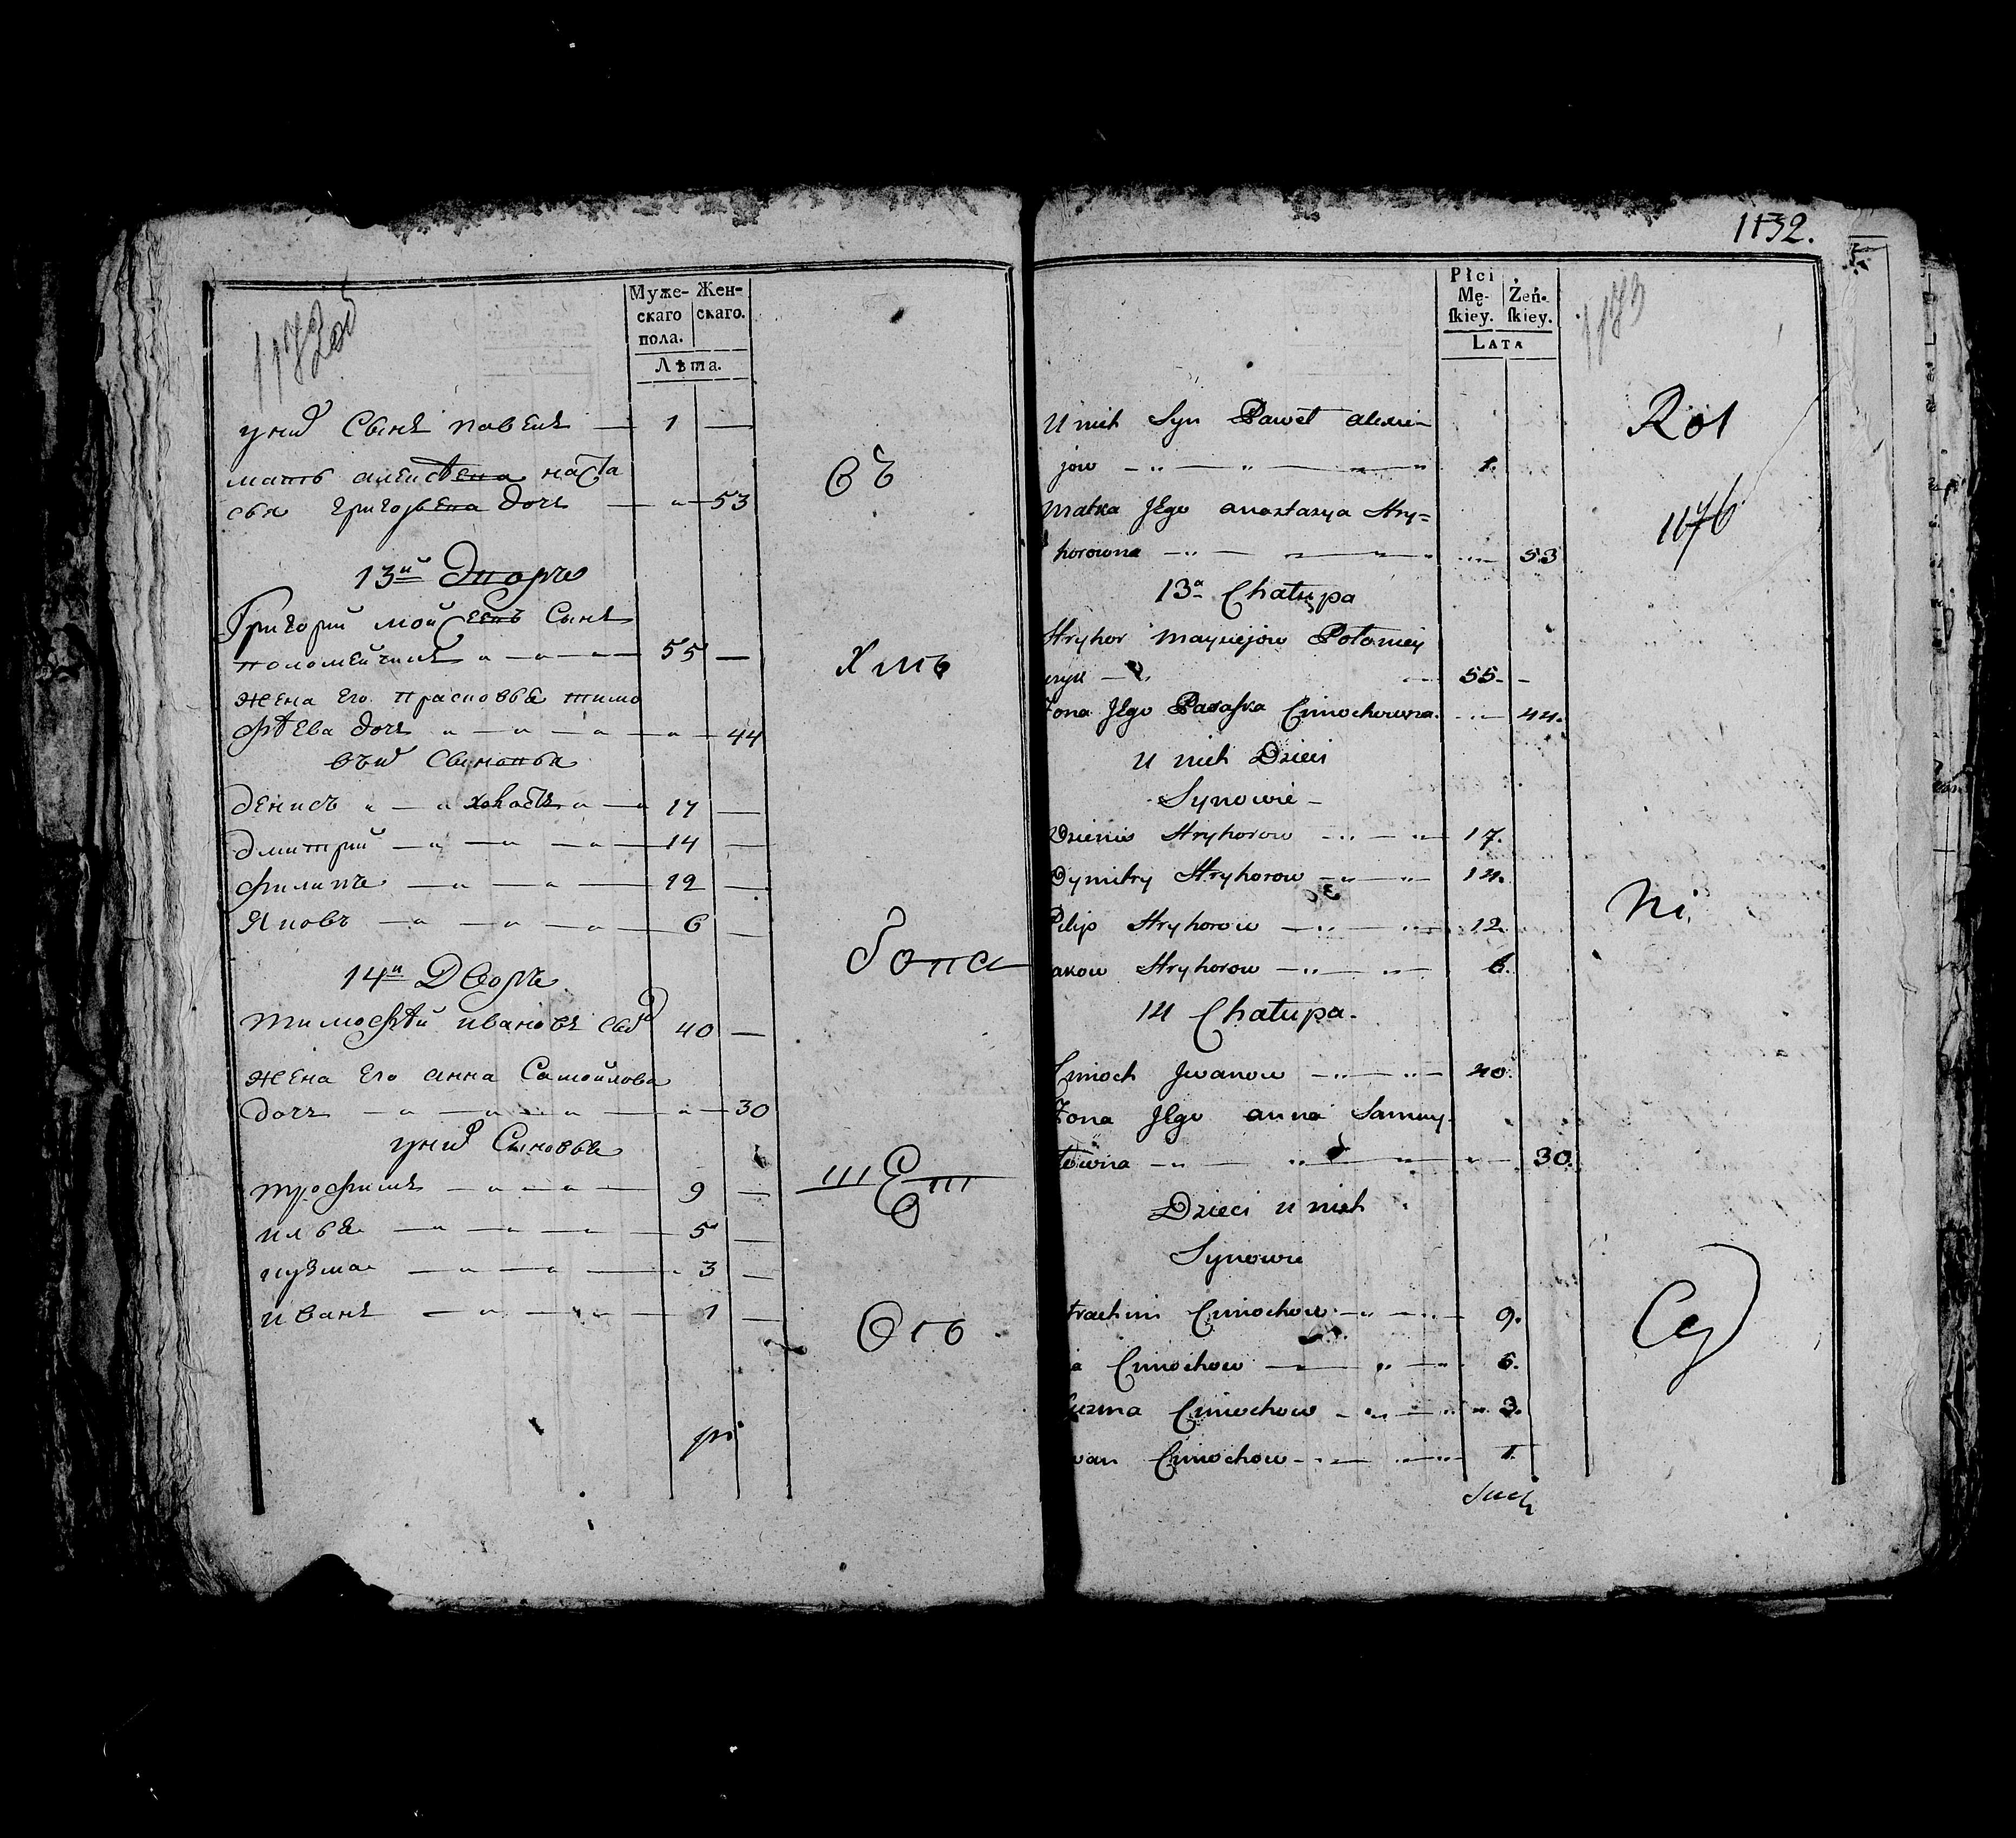 Муже-
скаго
пола.
Жен-
скаго.
Лѣта.
у них Сынъ павелъ — 1 —
мать алексѣева наста
сья григорьева дочь — " — 53
13й дворъ
Григорий мойсеевъ Сынъ
поломейчикъ " — " — " — 55 —
жена Его прасковья тимо
фѣева дочь " — " — " — " — 44
Сыновья
денисъ " — " холостъ " — " 17 —
дмитрий — " — " — " — 14 —
филипъ — " — " — 12 —
Яковъ — " — " — " — 6 —
14й Дворъ
тимофѣй ивановъ сы 40 —
жена Его анна Самойлова
дочь — " — " — " — " — 30
у них Сыновья
трофимъ — " — " — 9 —
илья — " — " — 5 —
кузма — " — " — 3 —
иванъ — " — " — 1 —
съ
1132.
Płci
Mę-
ſkiey.
Żeń-
ſkiey.
LATA
1173
U nich Syn Paweł alexie-
jow — " — " — " 1.
Matka Jego anastasya Hry=
horowna — " — " — 53
13a Chałupa
Hryhor Mayziejow Połomiey
czyk — 55. —
Żona Jego Paraska Cimochowna. — 44.
U nich Dzieci
Synowie —
Dzienis Hryhorow — " — " — 17.
Dymitry Hryhorow — " — " 14.
Pilip Hryhorow — " — " — 12.
akow Hryhorow — " — " — 6.
14 Chałupa.
Cimoch Jwanow — " — " — 40.
Żona Jego anna Samuy-
łowna — " — " — " — 30.
Dzieci u nich
Synowie
trachim Cimochow — " — 9.
ia Cimochow — " — " 5.
uzma Cimochow — " — " — 3.
wan Cimochow — " — " — 1.
Rol
1176
Ni.